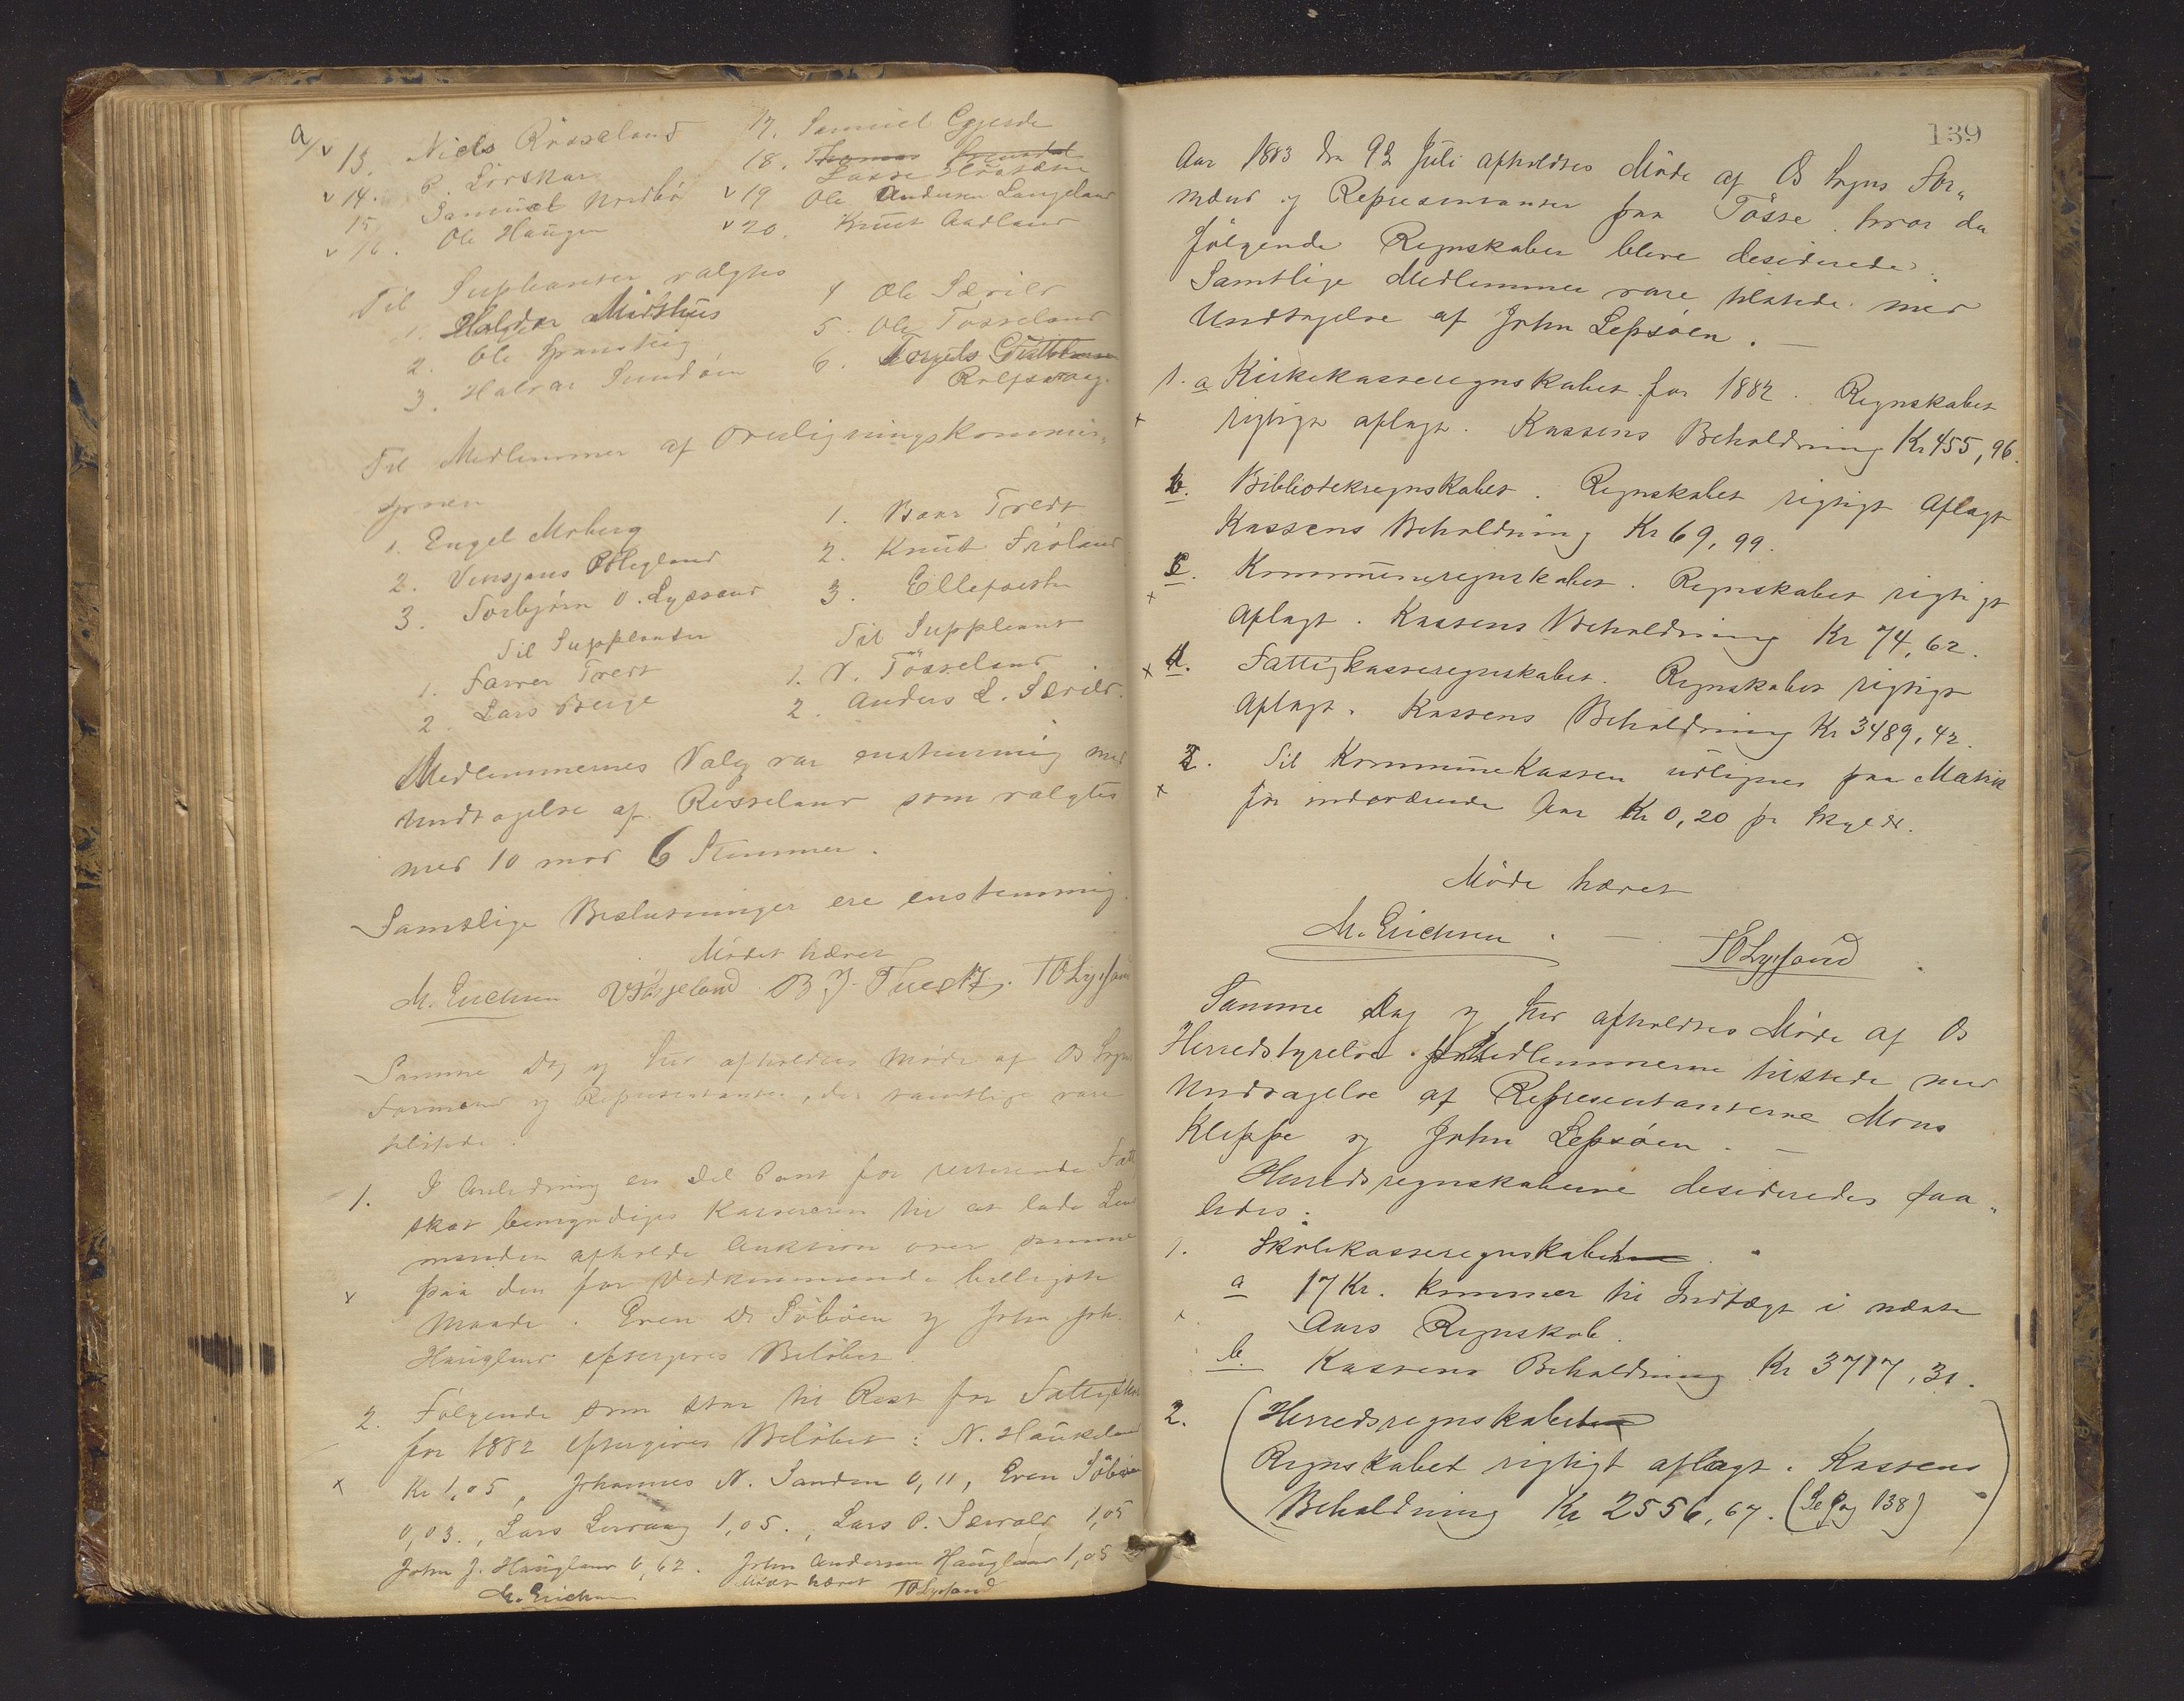 a/v 13. Niels Røsseland
v 14. P. Lörskar
15 Samuel Nordbö
v 16. Ole Haugen
17. Samuel Gjerde
18. Thomas
Lasse
v 19 Ole Andersen Langeland
v 20. Knut Aadland
Til Suplianter valgtes
1. Haldor Midthus
2. Ole
3. Halvar Sundöen
4 Ole Særild
5. Ole Tösseland
6. Torgils
Rolfsvaag.
Til Medlemmer af Overligningskommis-
sjonen
1. Engel Moberg
2. Vinsjans Hegland
3. Torbjörn O. Lyssand
Til Supplanter
1. Farver Tveit
2. Lars Berge
1. Baar Tveit
2. Knut Fröland
3. Ellefsen
Til Suppleant
1. N. Tösseland
2. Anders L. Særild.
Medlemmernes Valg var enstemmig med
Undtagelse af Røsseland som valgtes
med 10 mod 6 Stemmer.
Samtlige Beslutninger ere enstemmig.
Mödet hævet
M. Erichsen B J. Tveit TOLyssand
Samme Dag og Sted afholdtes Möde af Os Sogns
Formænd og Representanter, der samtlige vare
tilstede.
1. I Anledning en Del Pant for resterende Fatt
skat bemyndiges Kassereren til at lade Len
manden afholde Auktion over samme
x paa den for Vedkommende billigste
Maade. Even Söböen og John Joh.
Haugland eftergives Belöbet.
2. Følgende som staar til Rest for Fattigskat
for 1882 eftergives Belöbet: N. Haukeland
x Kr 1,05, Johannes N. Sanden 0,11, Even Söböen
0,03., Lars Lervaag 1,05., Lars P. Særvold 1,05
John J. Haugland 0,62. John Andersen Haugland 1,05
Mödet hævet
M. Erichsen TOLyssand
139
Aar 1883 den 92 Juli afholdtes Möde af Os Sogns For-
mænd og Representanter paa Tösse. hvor da
følgende Regnskaber bleve desiderede.
Samtlige Medlemmer vare tilstede med
Undtagelse af John Lepsöen.
1. a Kirkekasseregnskabet for 1882. Regnskabet
x rigtigt aflagt. Kassens Beholdning Kr 455,96.
b. Bibliotekregnskabet. Regnskabet rigtigt aflagt
Kassens Beholdning Kr 69,99.
c. Kommuneregnskabet. Regnskabet rigtigt
x aflagt. Kassens Beholdning Kr 74,62.
x d. Fattigkasseregnskabet. Regnskabet rigtigt
aflagt. Kassens Beholdning Kr 3489,42.
2. Til Kommunekassen udlignes paa Matrik
x for indeværende Aar Kr 0,20 pr Skyldd.
Möde hævet
M. Erichsen. TOLyssand
Samme Dag og Sted afholdtes Möde af Os
Herredstyrelse. Medlemmerne tilstede med
Undtagelse af Representanterne Mons
Klyppe og John Lepsöen.
Herredsregnskaberne desideredes saa-
ledes:
1. Skolekasseregnskabet
a 17 Kr. kommer til Indtægt i næste
x Aars Regnskab.
b. Kassens Beholdning Kr 3717,31.
2. (Herredsregnskabet
Regnskabet rigtigt aflagt. Kassens
Beholdning Kr 2556,67. (Se Pag 138))